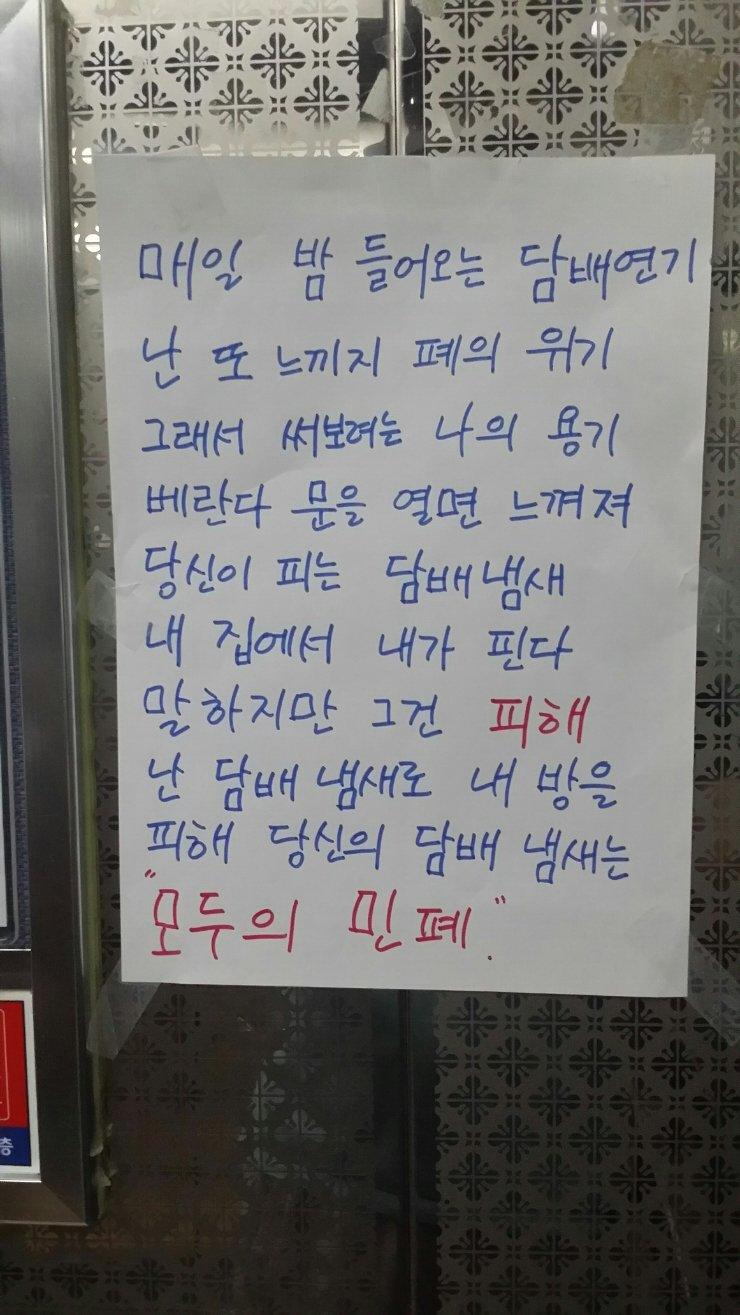 매일 밤 들어오는 담배연기
난 또 느끼지 폐의 위기
그래서 써보려는 나의 용기
베란다 문을 열면 느껴져
당신이 피는 담배냄새
내 집에서 내가 핀다
말하지만 그건 피해
난 담배 냄새로 내 방을
피해 당신의 담배 냄새는
"모두의 민폐."
층